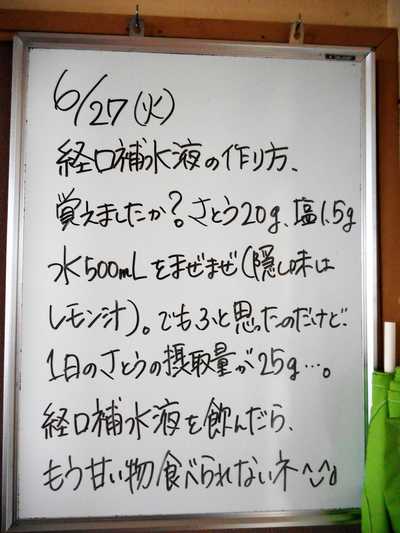 6/27(火)
経口補水液の作り方、
覚えましたか?さとう20g、塩1.5g
水500mLをまぜまぜ(隠し味は
レモン汁)。でもふと思ったのだけど、
1日のさとうの摂取量が25g…。
経口補水液を飲んだら、
もう甘い物食べられないネ